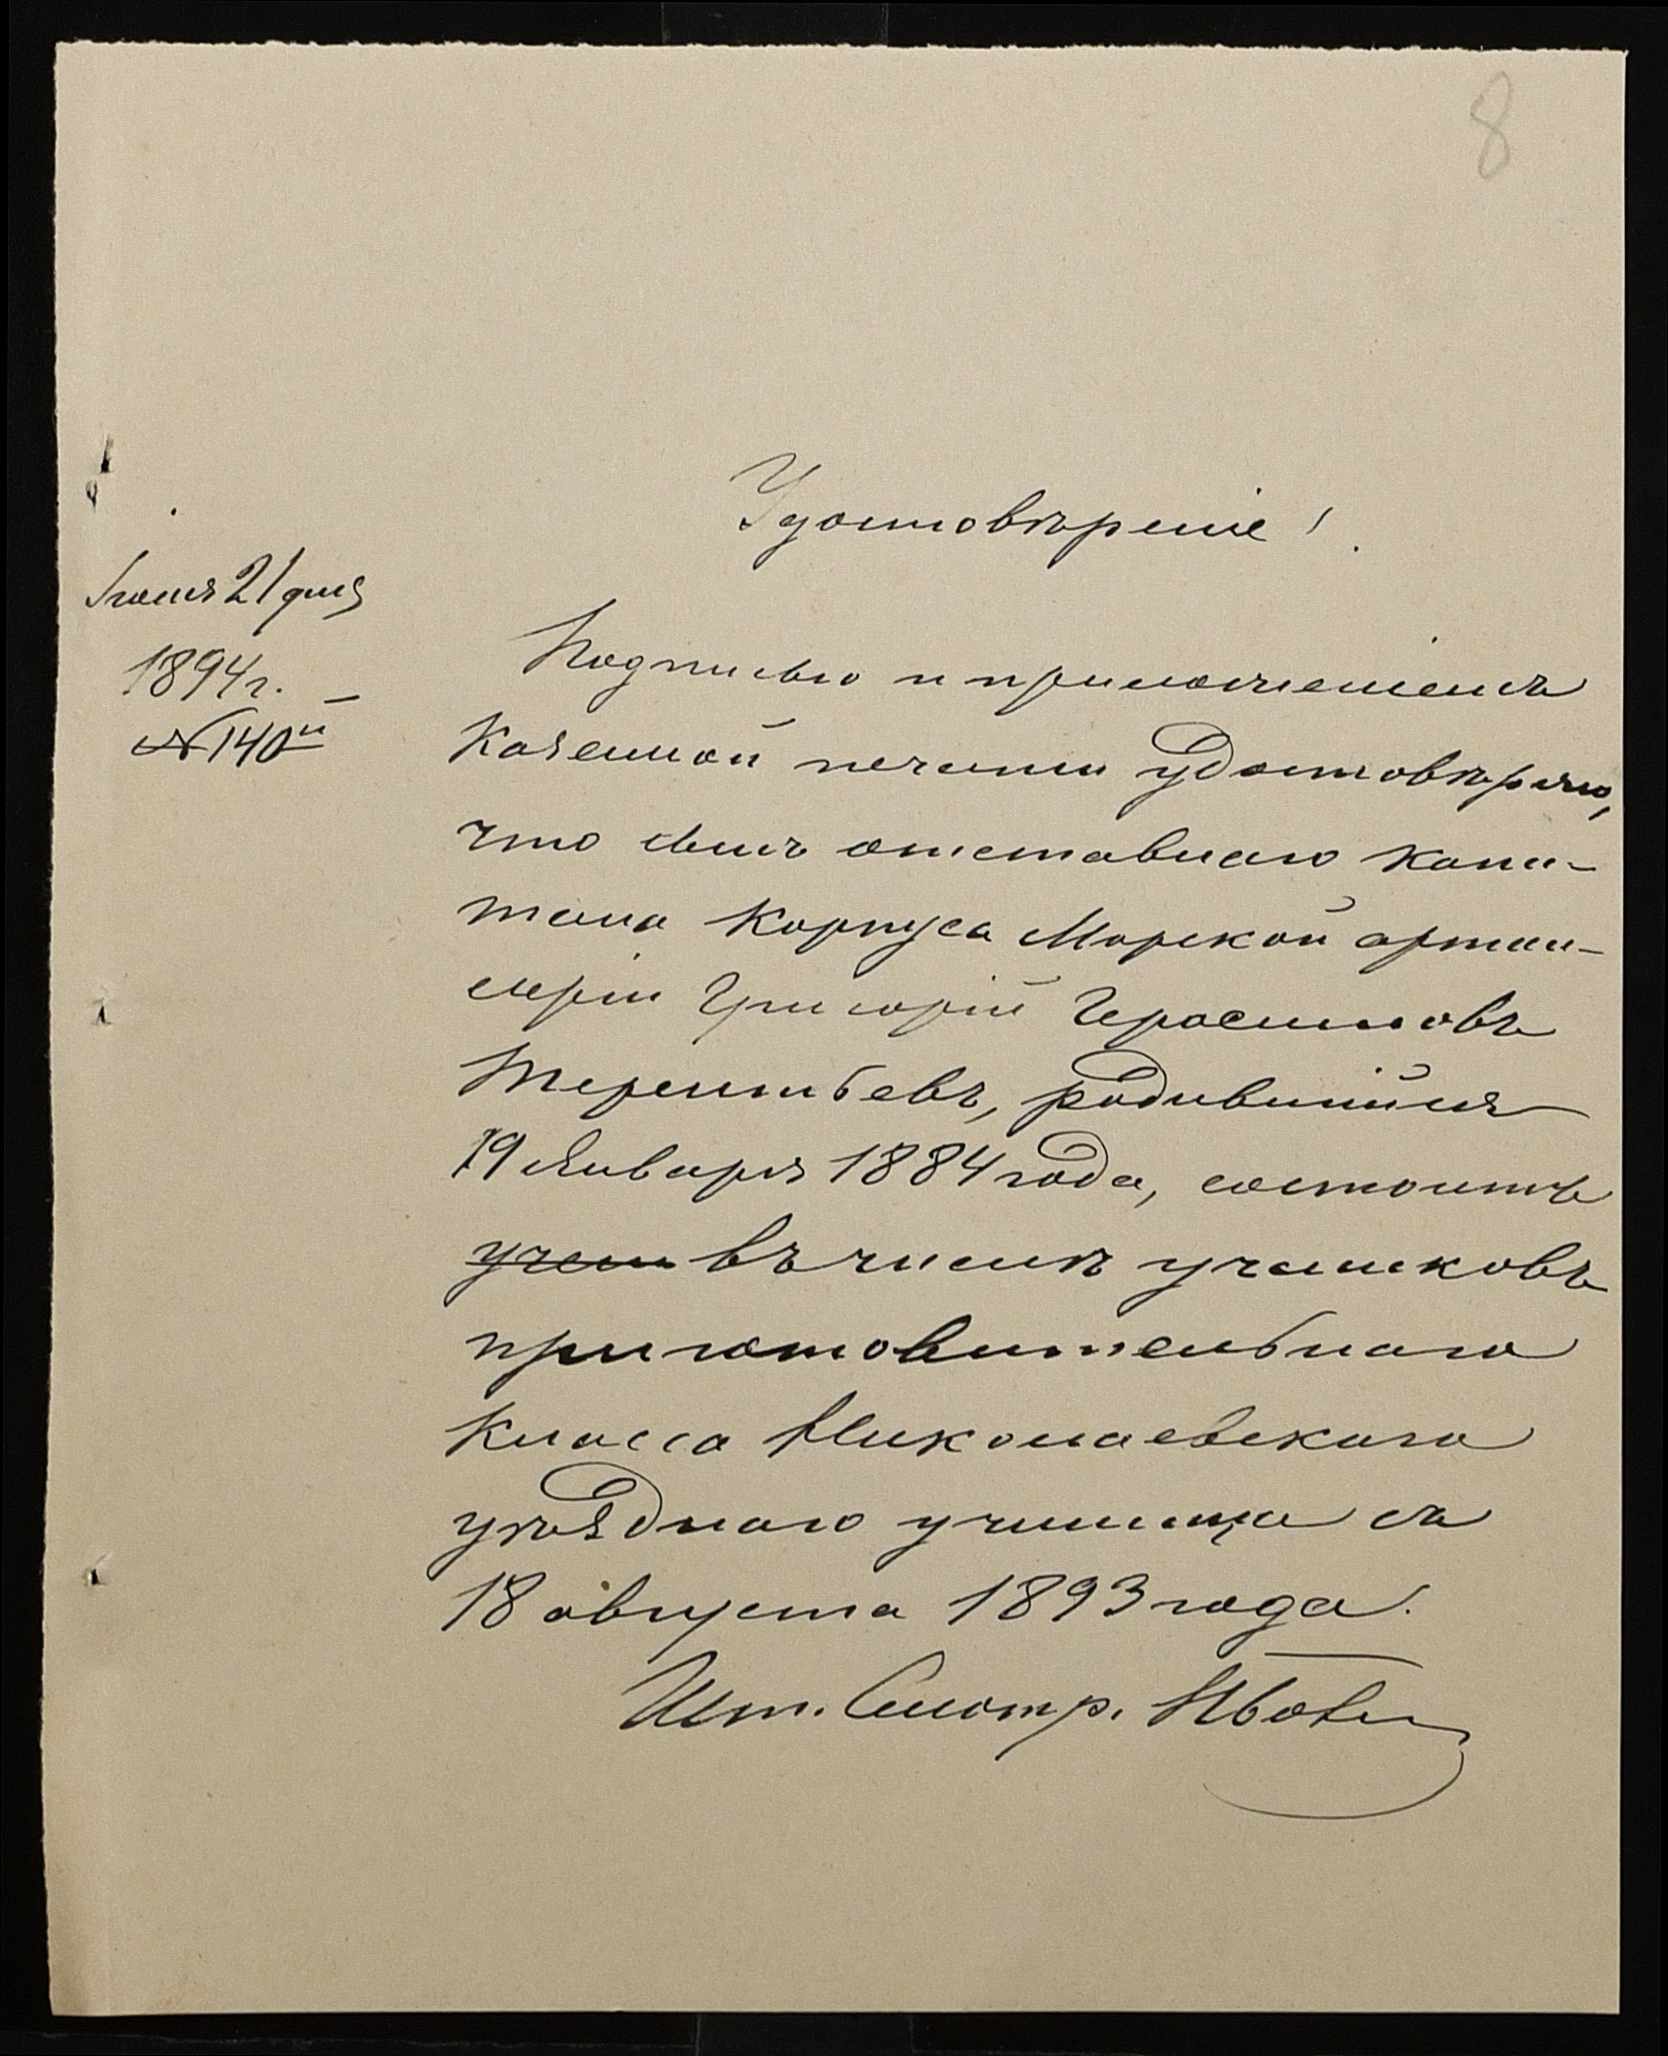 8
Удостовѣреніе!
Іюня 21 дня
1894 г. –
№ 140й
Подписью и приложеніемъ
казенной печати удостовѣряю,
что сынъ отставнаго капи-
тана Корпуса Морской артил-
леріи Григорій Герасимовъ
Терентьевъ, родившійся
19 Января 1884 года, состоитъ
учен въ числѣ учениковъ
приготовительнаго
класса Николаевскаго
уѣзднаго училища съ
18 августа 1893 года.
Шт. Смотр.